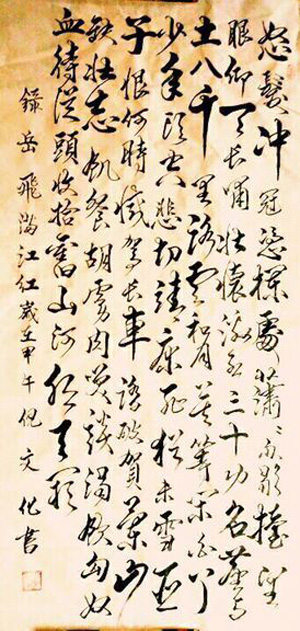 怒髮冲冠憑欄處蕭〻雨歇擡望
眼仰天長嘯壯懷激烈三十功名塵與
土八千里路雲和月莫等閑白了
少年頭空悲切靖康恥猶未雪臣
子恨何時滅駕長車踏破賀蘭山
缺壯志飢餐胡虜肉笑談渴飲匈奴
血待從頭收拾舊山河朝天闕
錄岳飛滿江紅歲在甲午倪文化書